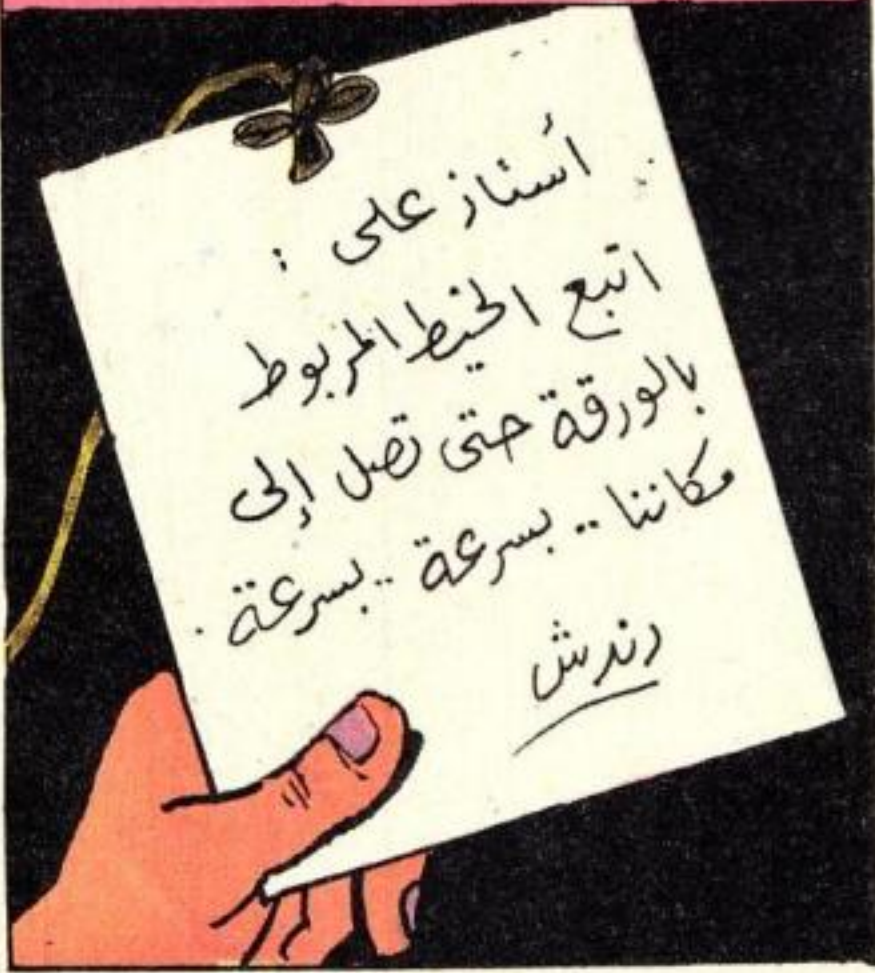 أستاذ على :
اتبع الخيط المربوط
بالورقة حتى تصل إلى
مكاننا .. بسرعة .. بسرعة .
دندش